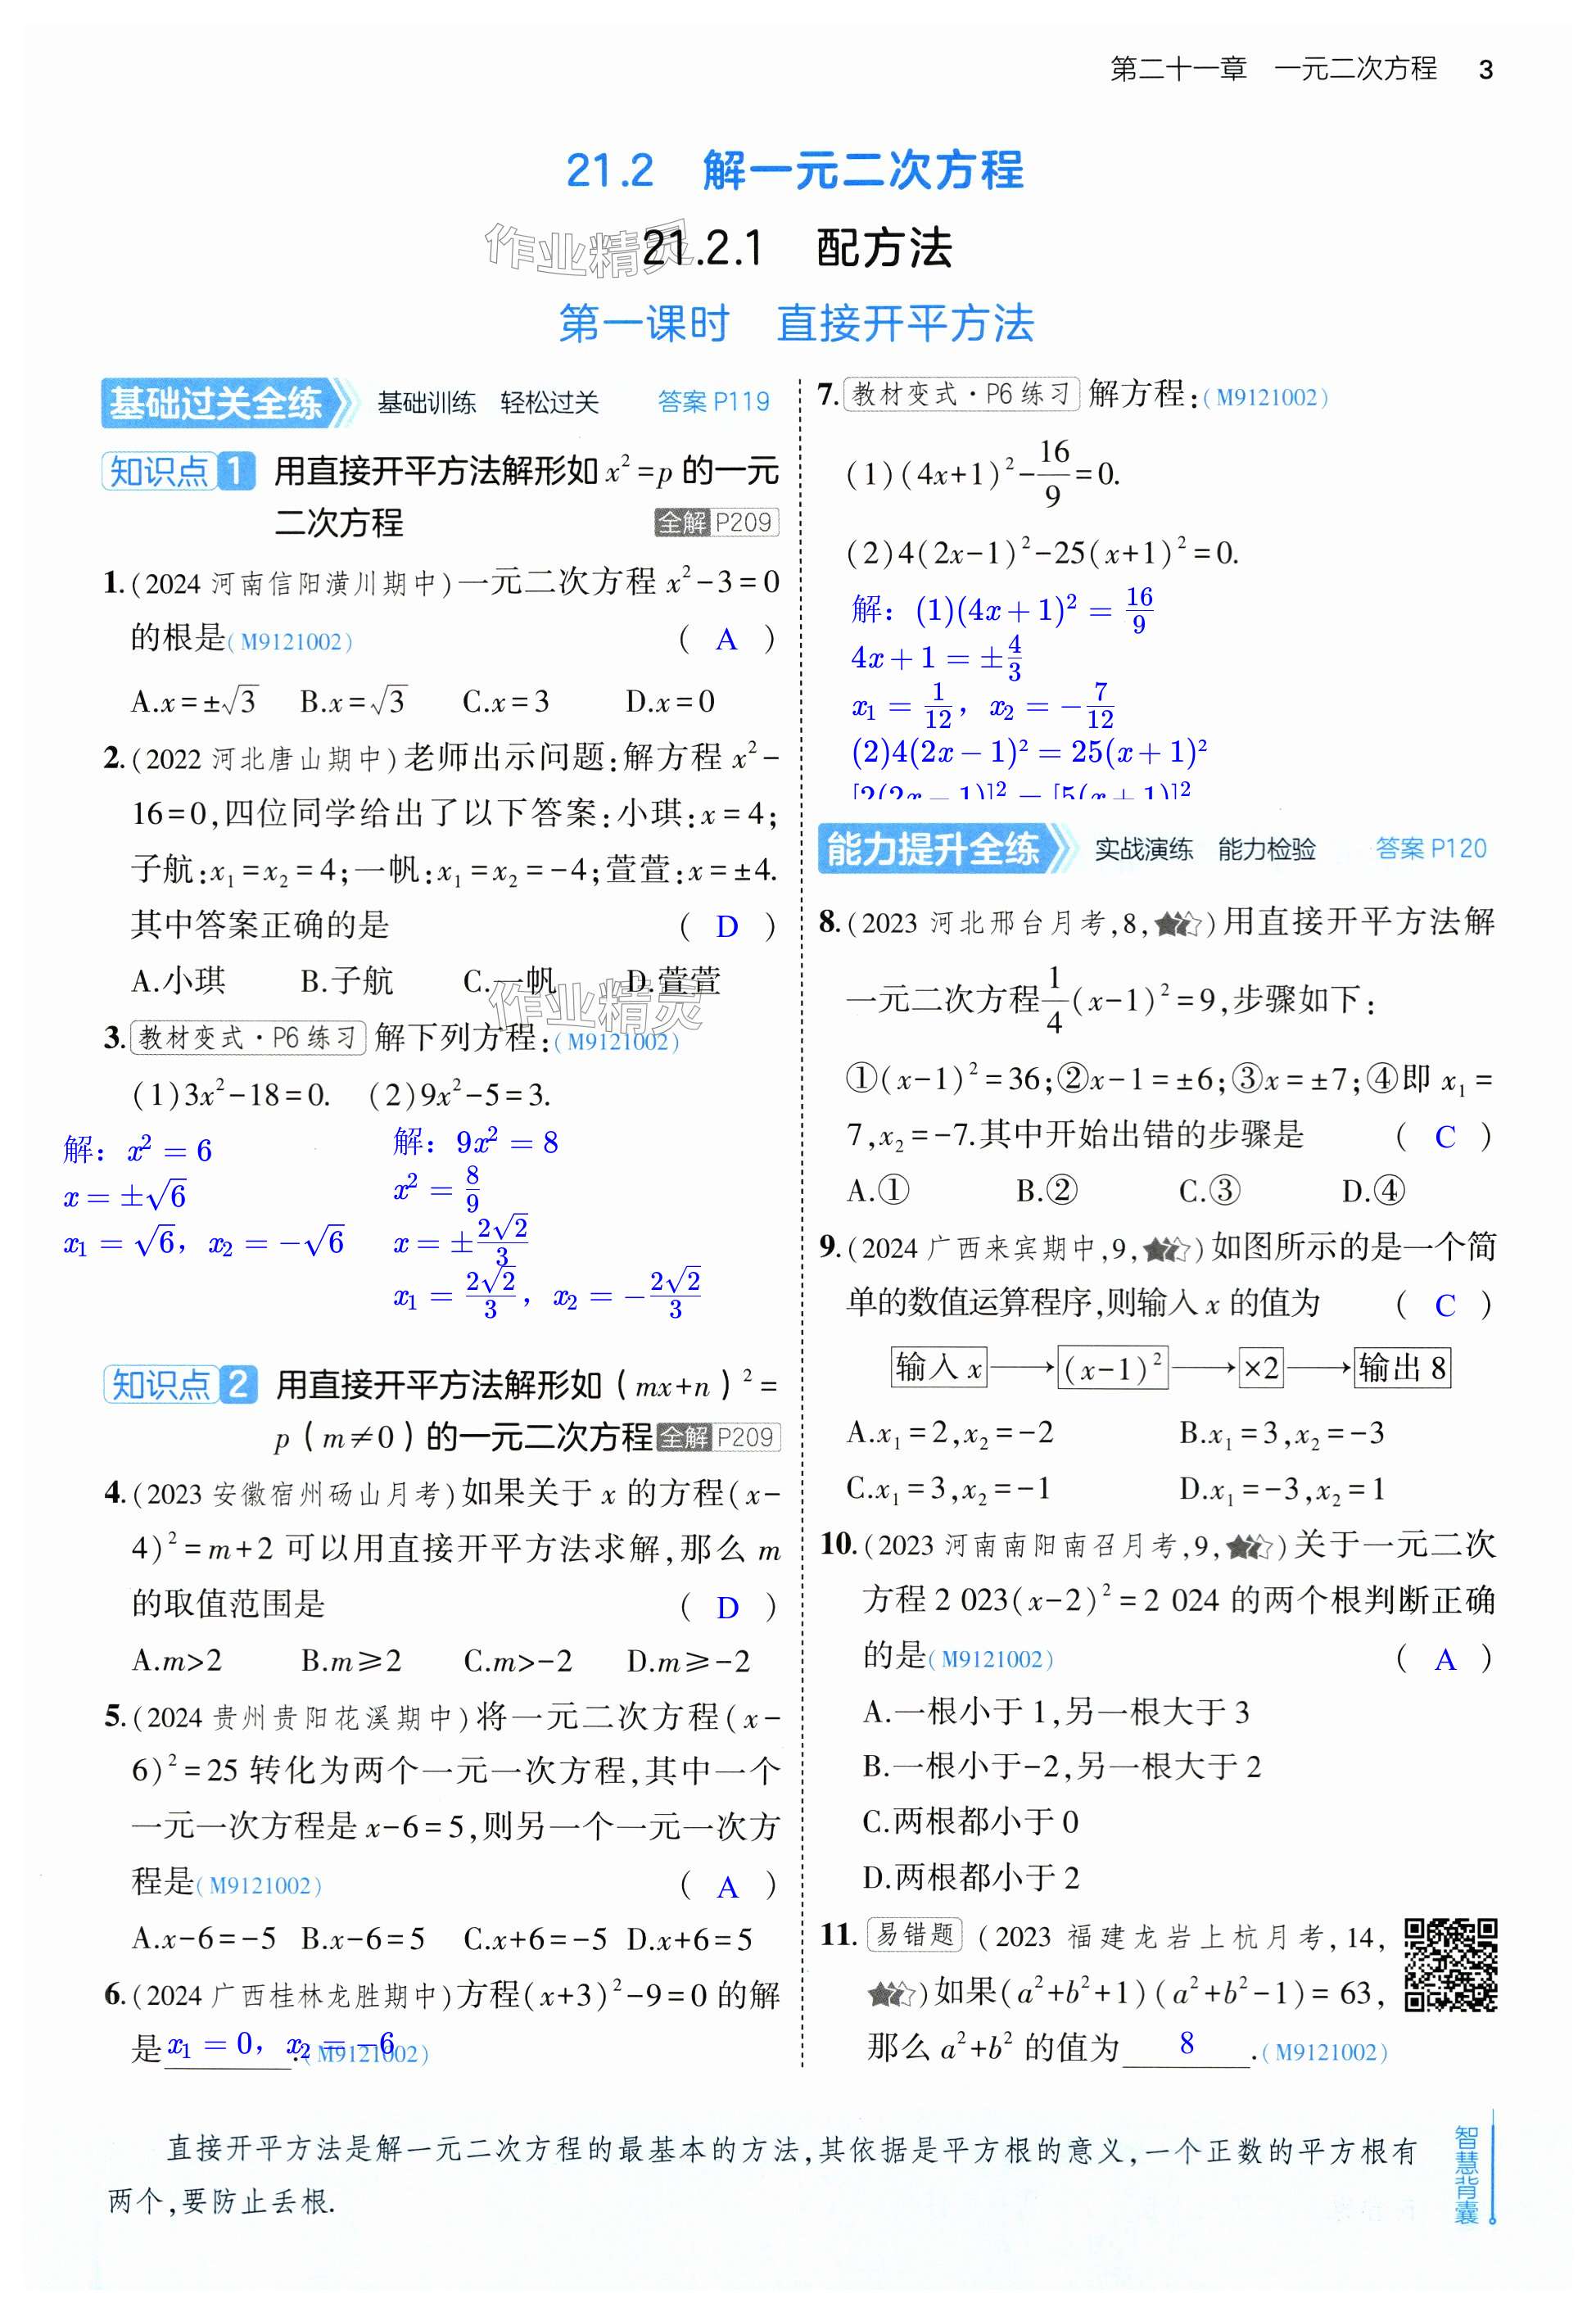 第二十一章 一元二次方程 3
21.2 解一元二次方程
作业精灵
21.2.1 配方法
第一课时 直接开平方法
基础过关全练 基础训练 轻松过关 答案 P119
知识点 1 用直接开平方法解形如 x²=p 的一元
二次方程 全解 P209
1.(2024 河南信阳潢川期中)一元二次方程 x²-3=0
的根是(M9121002) ( A )
A.x=±√3 B.x=√3 C.x=3 D.x=0
2.(2022 河北唐山期中)老师出示问题:解方程 x²-
16=0,四位同学给出了以下答案:小琪:x=4;
子航:x₁=x₂=4;一帆:x₁=x₂=-4;萱萱:x=±4.
其中答案正确的是 ( D )
A.小琪 B.子航 C.一帆 D.萱萱
作业精灵
3.教材变式·P6 练习 解下列方程:(M9121002)
(1)3x²-18=0. (2)9x²-5=3.
解：x²=6
x=±√6
x₁=√6，x₂=-√6
解：9x²=8
x²=8/9
x=±2√2/3
x₁=2√2/3，x₂=-2√2/3
知识点 2 用直接开平方法解形如(mx+n)²=
p(m≠0)的一元二次方程 全解 P209
4.(2023 安徽宿州砀山月考)如果关于 x 的方程(x-
4)²=m+2 可以用直接开平方法求解,那么 m
的取值范围是 ( D )
A.m>2 B.m≥2 C.m>-2 D.m≥-2
5.(2024 贵州贵阳花溪期中)将一元二次方程(x-
6)²=25 转化为两个一元一次方程,其中一个
一元一次方程是 x-6=5,则另一个一元一次方
程是(M9121002) ( A )
A.x-6=-5 B.x-6=5 C.x+6=-5 D.x+6=5
6.(2024 广西桂林龙胜期中)方程(x+3)²-9=0 的解
是x₁=0，x₂=-6.(M9121002)
7.教材变式·P6 练习 解方程:(M9121002)
(1)(4x+1)²-16/9=0.
(2)4(2x-1)²-25(x+1)²=0.
解：(1)(4x+1)²=16/9
4x+1=±4/3
x₁=1/12，x₂=-7/12
(2)4(2x-1)²=25(x+1)²
[2(2x-1)]²=[5(x+1)]²
能力提升全练 实战演练 能力检验 答案 P120
8.(2023 河北邢台月考,8,★★☆)用直接开平方法解
一元二次方程1/4(x-1)²=9,步骤如下:
①(x-1)²=36;②x-1=±6;③x=±7;④即 x₁=
7,x₂=-7.其中开始出错的步骤是 ( C )
A.① B.② C.③ D.④
9.(2024 广西来宾期中,9,★★☆)如图所示的是一个简
单的数值运算程序,则输入 x 的值为 ( C )
输入 x → (x-1)² → ×2 → 输出 8
A.x₁=2,x₂=-2 B.x₁=3,x₂=-3
C.x₁=3,x₂=-1 D.x₁=-3,x₂=1
10.(2023 河南南阳南召月考,9,★★☆)关于一元二次
方程 2 023(x-2)²=2 024 的两个根判断正确
的是(M9121002) ( A )
A.一根小于 1,另一根大于 3
B.一根小于-2,另一根大于 2
C.两根都小于 0
D.两根都小于 2
11.易错题 (2023 福建龙岩上杭月考,14,
★★☆)如果(a²+b²+1)(a²+b²-1)=63,
那么 a²+b² 的值为 8 .(M9121002)
直接开平方法是解一元二次方程的最基本的方法,其依据是平方根的意义,一个正数的平方根有
两个,要防止丢根.
智慧背囊